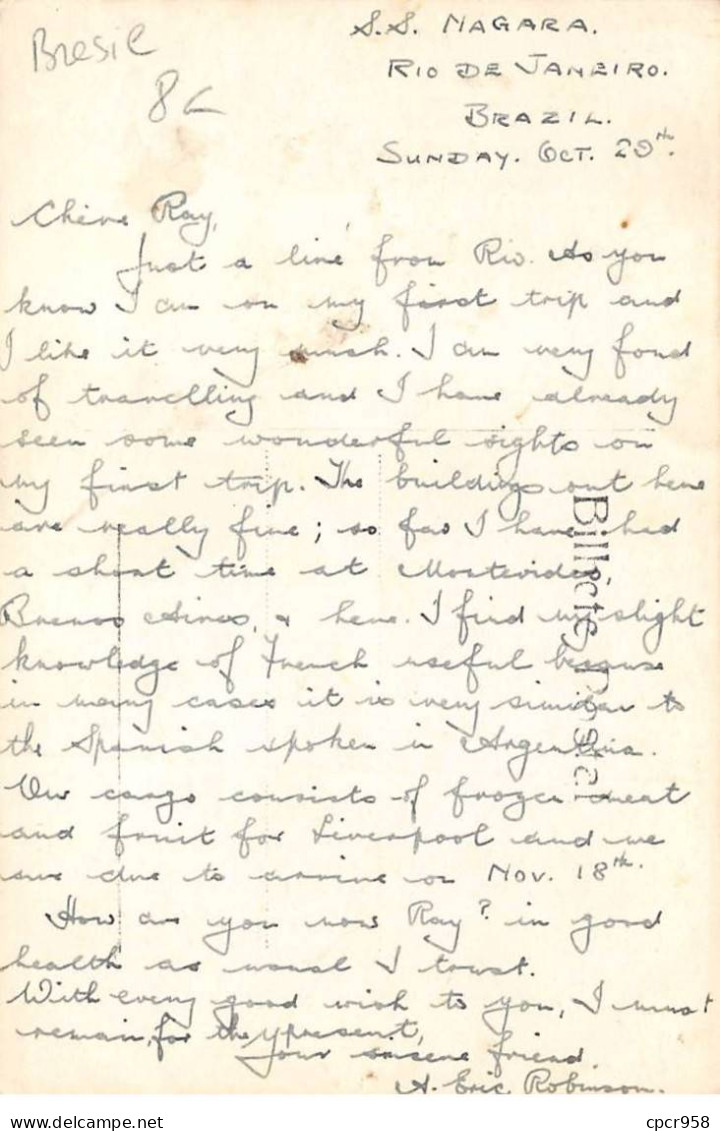 Bresil
8€
S.S. NAGARA.
RIO DE JANEIRO.
BRAZIL.
SUNDAY. OCT. 29th.
Chère Ray,
Just a line from Rio. As you
know I am on my first trip and
I like it very much. I am very fond
of travelling and I have already
seen some wonderful sights on
my first trip. The buildings out here
are really fine; so far I have had
a short time at Montevideo,
Buenos Aires, & here. I find my slight
knowledge of French useful because
in many cases it is very similar to
the Spanish spoken in Argentina.
Our cargo consists of frozen meat
and fruit for Liverpool and we
are due to arrive on Nov. 18th.
How are you now Ray? in good
health as usual I trust.
With every good wish to you, I must
remain, for the present,
Your sincere friend
A. Eric Robinson.
Bilhete Postal
cpcr958